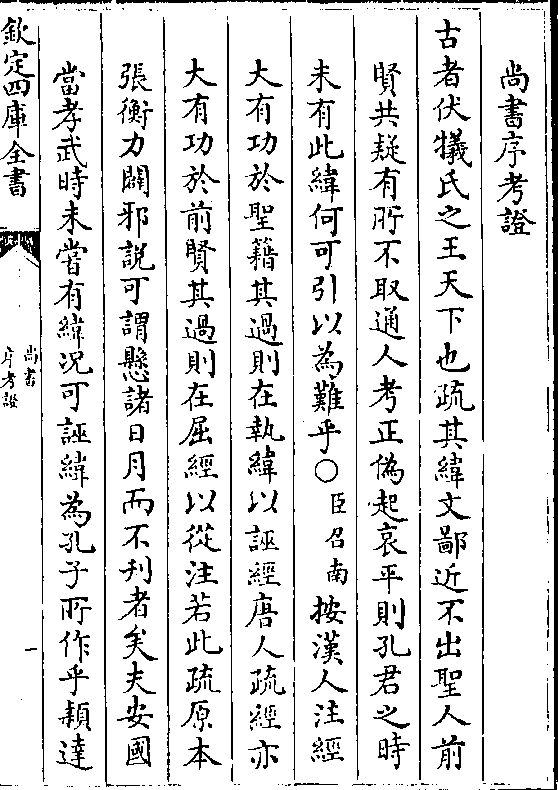 尚書序考證
古者伏犧氏之王天下也疏其緯文鄙近不出聖人前
賢共疑有所不取通人考正偽起哀平則孔君之時
未有此緯何可引以為難乎○臣召南按漢人注經
大有功於聖籍其過則在執緯以誣經唐人疏經亦
大有功於前賢其過則在屈經以從注若此疏原本
張衡力闢邪說可謂懸諸日月而不刋者矣夫安國
當孝武時未嘗有緯况可誣緯為孔子所作乎頴達
欽定四庫全書
尚書
序考證
一